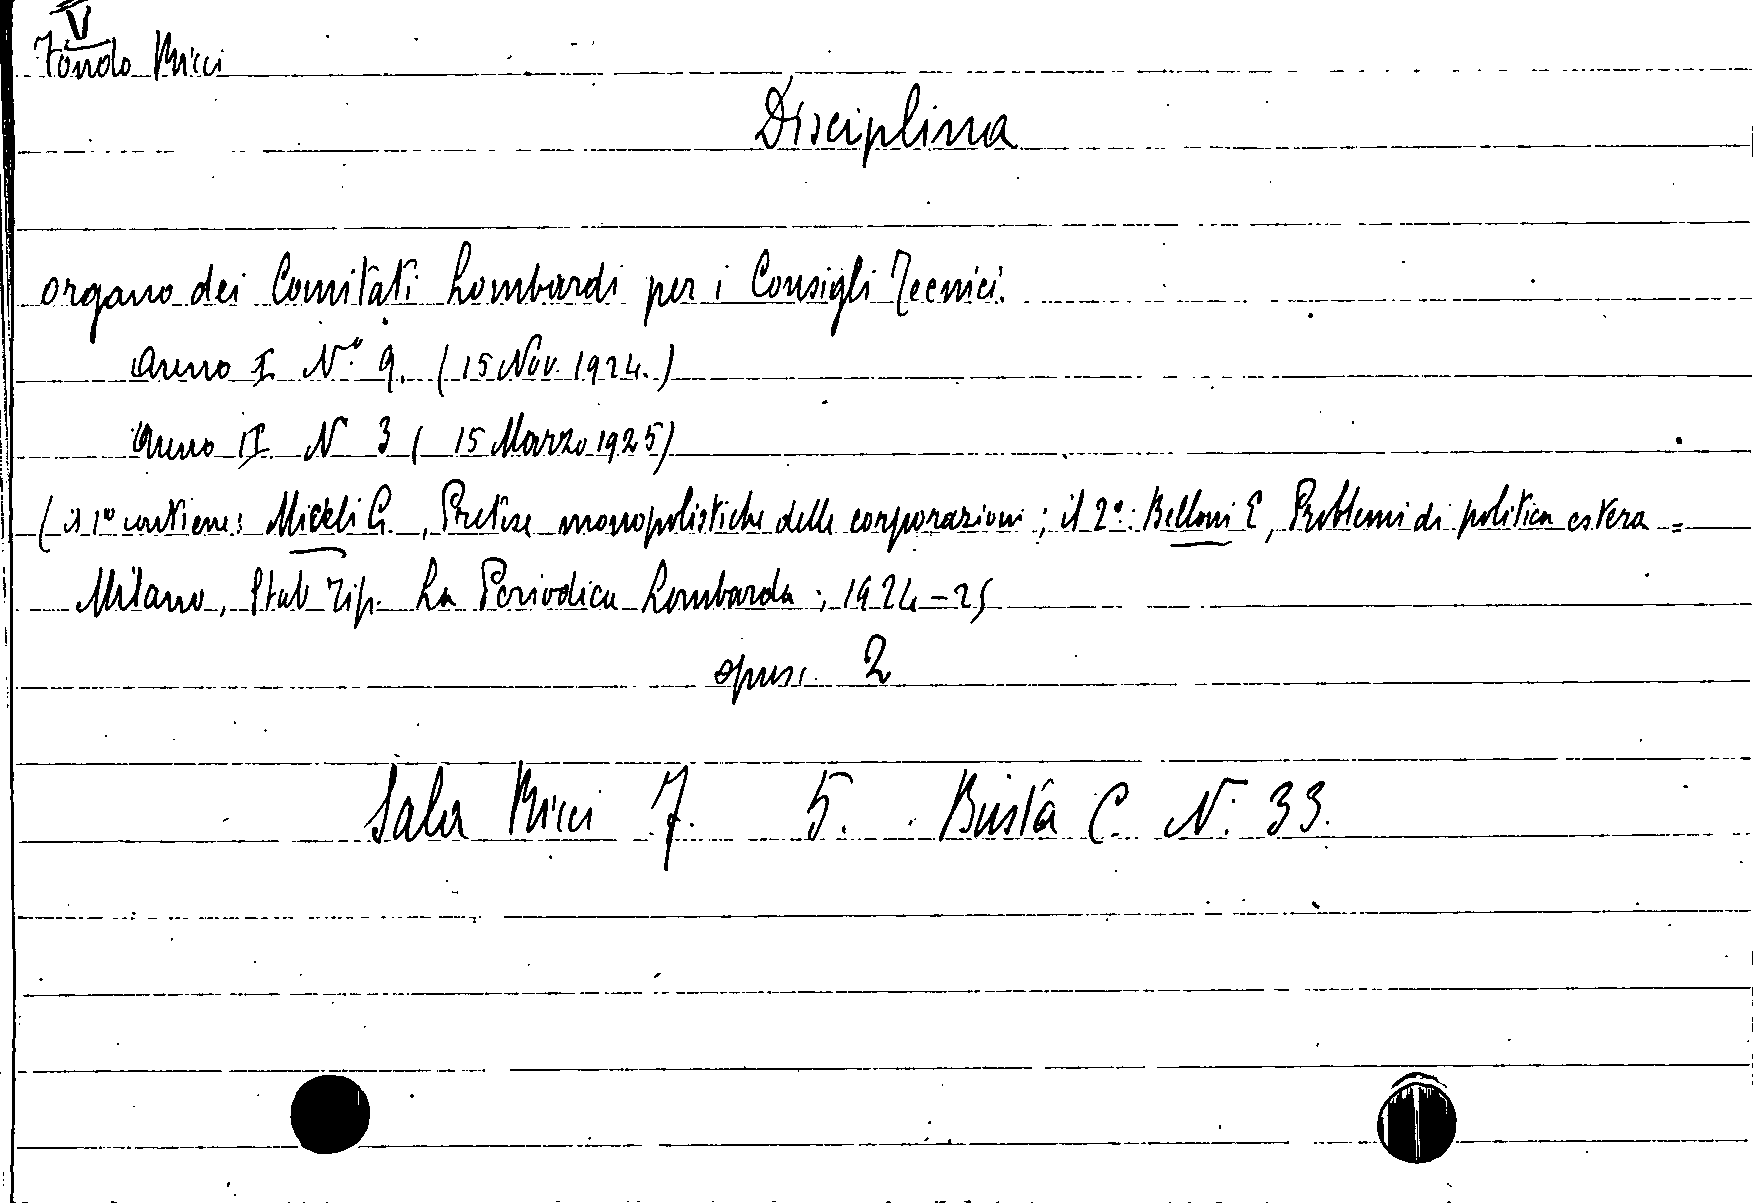 V
Fondo Ricci
Disciplina
organo dei Comitati Lombardi per i Consigli Tecnici.
Anno I N.º 9. (15 Nov. 1924.)
Anno II N 3 ( 15 Marzo 1925)
(il 1º contiene: Miceli G., Pretese monopolistiche delle corporazioni; il 2º: Belloni E, Problemi di politica estera =
Milano, Stab Tip. La Periodica Lombarda; 1924-25
opusc. 2
Sala Ricci 7. 5. Busta C. N. 33.